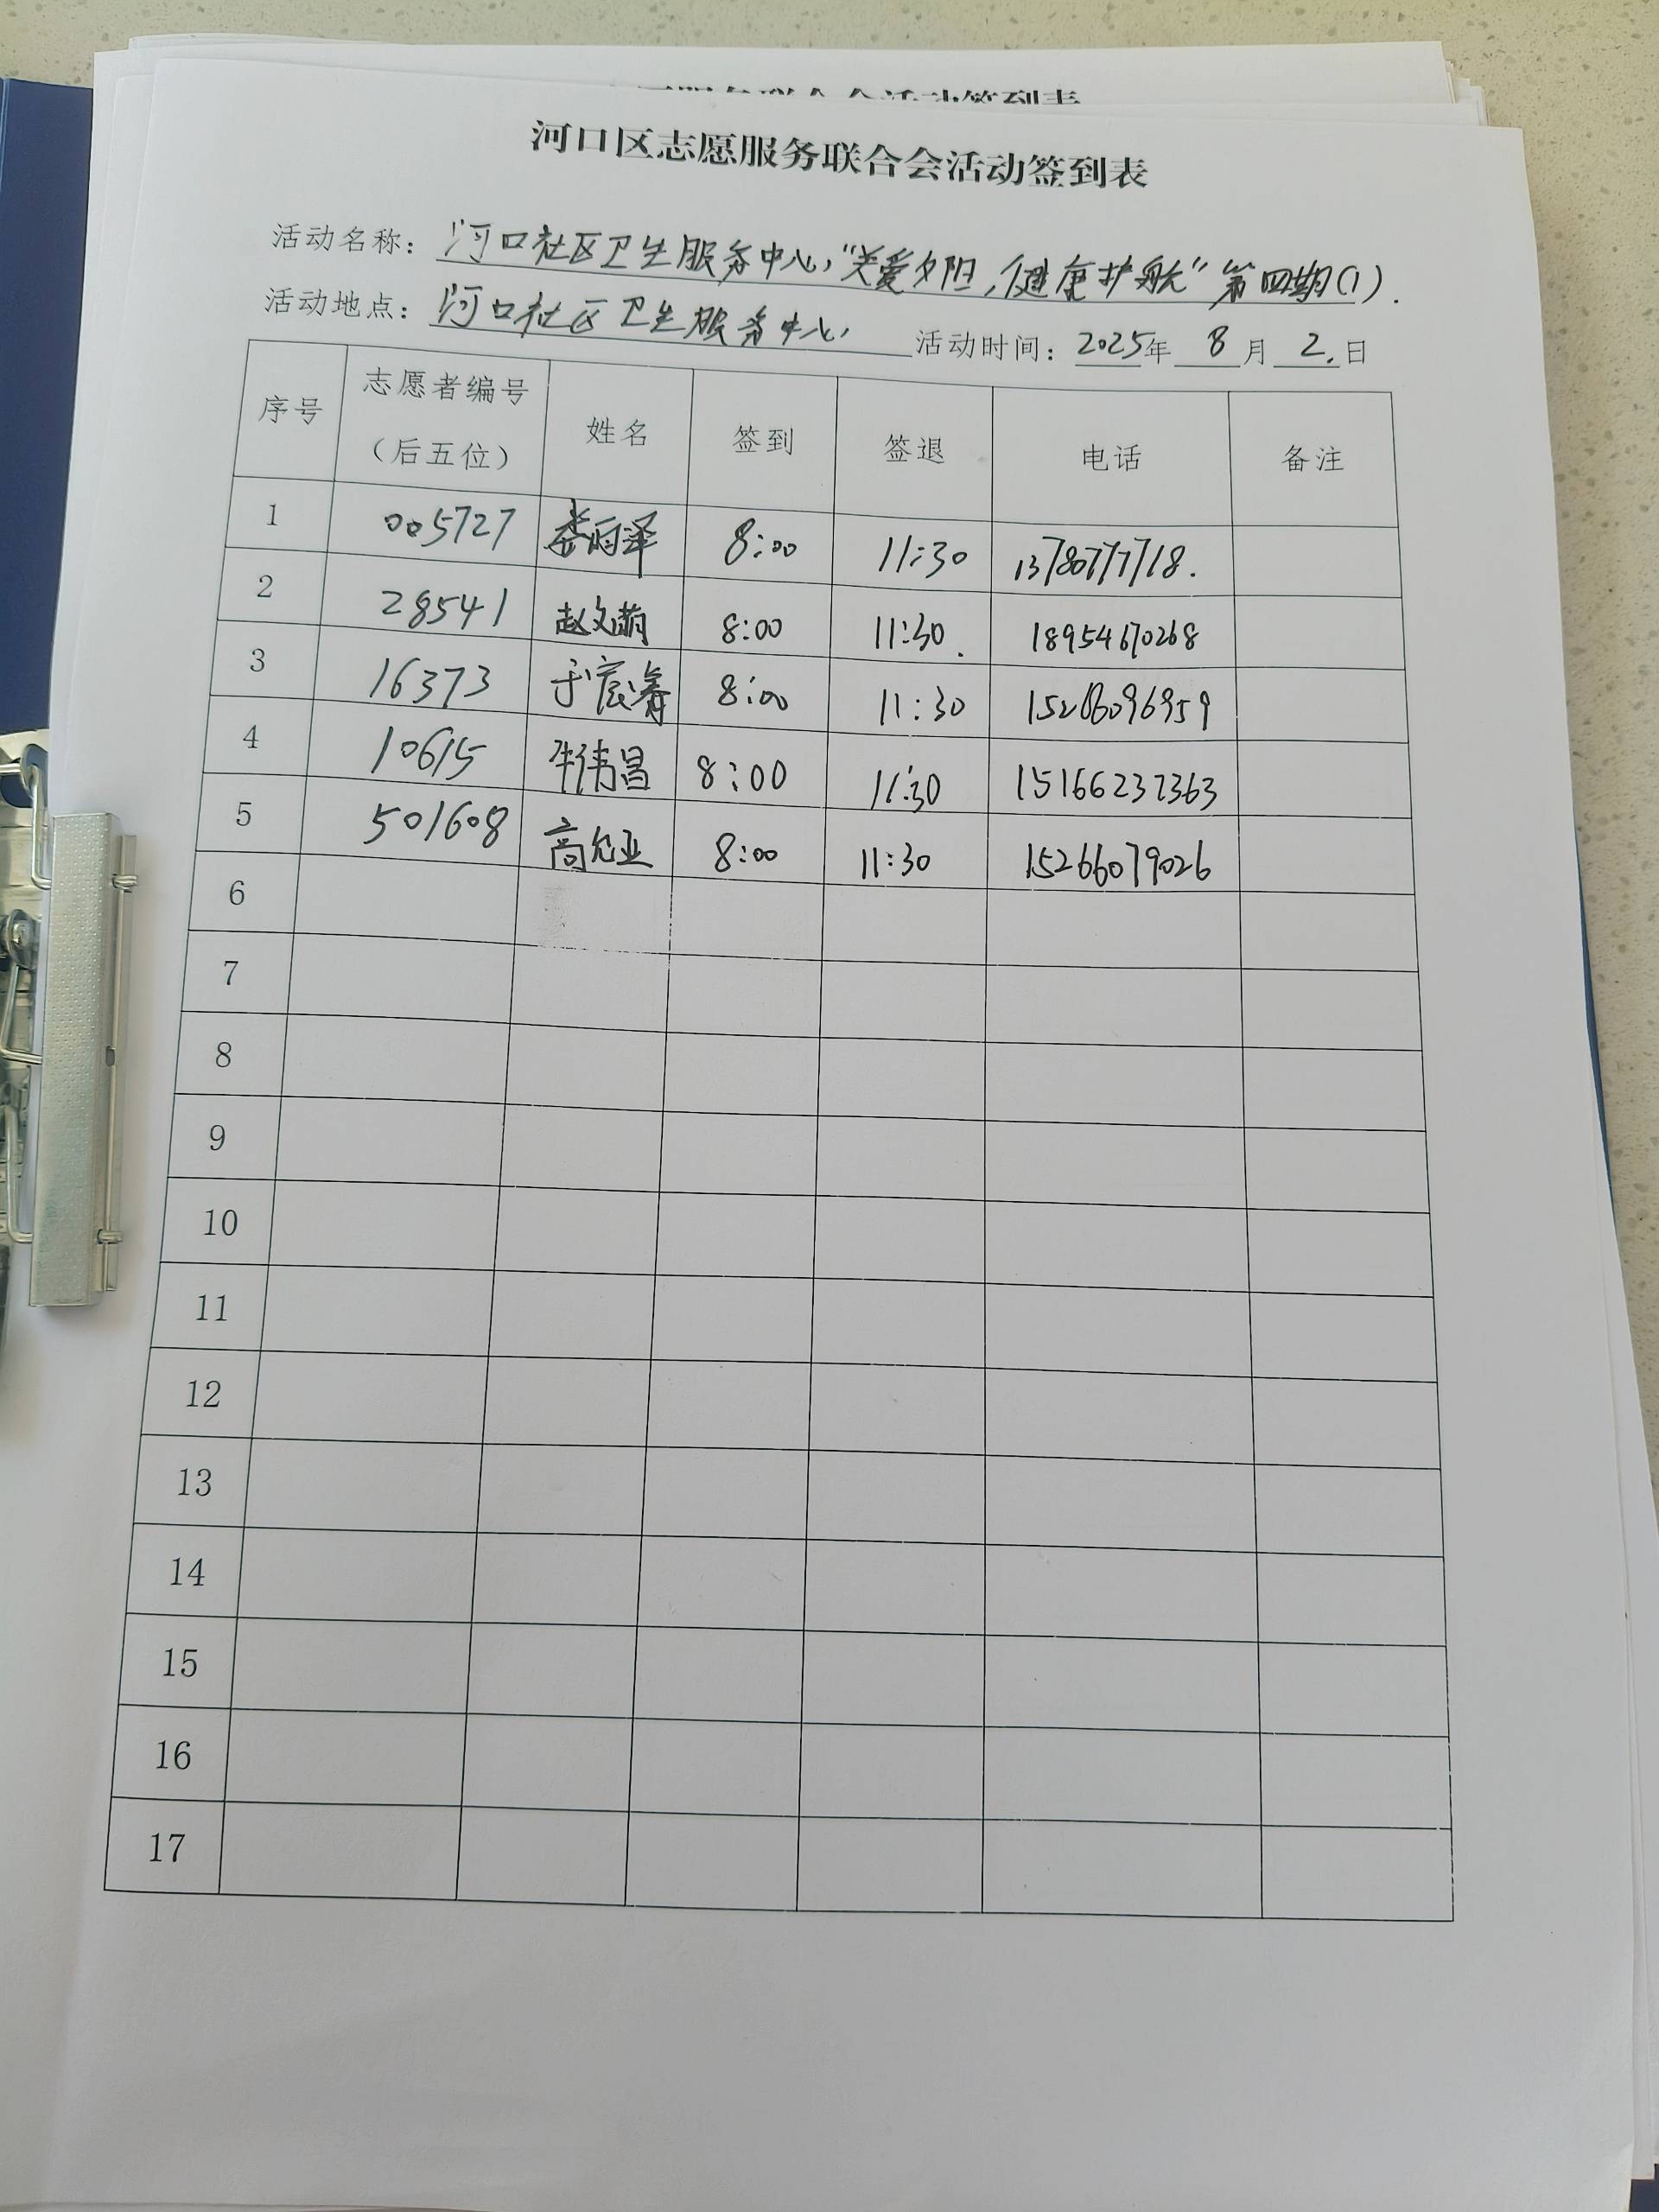 河口区志愿服务联合会活动签到表
活动名称：河口社区卫生服务中心，“关爱夕阳，健康护航”第四期(1).
活动地点：河口社区卫生服务中心 活动时间：2025年 8 月 2. 日
序号 志愿者编号（后五位） 姓名 签到 签退 电话 备注
1 005727 娄雨泽 8:00 11:30 13780777718.
2 28541 赵文萌 8:00 11:30. 18954670268
3 16373 于宸 8:00 11:30 15206096959
4 10615 牛伟昌 8:00 11:30 15166237363
5 501608 高允亚 8:00 11:30 15266079026
6
7
8
9
10
11
12
13
14
15
16
17